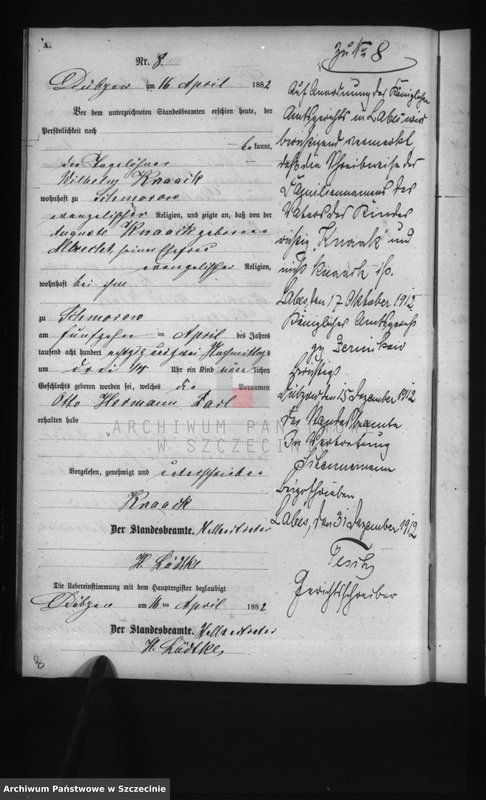 A.
Nr. 8
Dübzow am 16 April 1882
Vor dem unterzeichneten Standesbeamten erschien heute, der
Persönlichkeit nach
bekannt,
der Tagelöhner
Wilhelm Knaack
wohnhaft zu Schmorow
evangelischer Religion, und zeigte an, daß von der
Auguste Knaack geborenen
seiner Ehefrau
evangelischer Religion,
wohnhaft bei ihm
zu Schmorow
am fünfzehn ten April des Jahres
tausend acht hundert achtzig und zwei Nachmittags
um drei Uhr ein Kind männlichen
Geschlechts geboren worden sei, welches die Vornamen
Otto Hermann Carl
erhalten habe
Vorgelesen, genehmigt und unterschrieben
Knaack
Der Standesbeamte. Stellvertreter
H. Lüdtke
Die Uebereinstimmung mit dem Hauptregister beglaubigt
Dübzow am 16 ten April 1882
Der Standesbeamte. Stellvertreter
H. Lüdtke
8
zu No 8
Auf Anordnung des Königlichen
Amtsgerichts in Labes wird
berichtigend vermerkt
daß die Schreibweise des
Familiennamens des
Vaters des Kindes
richtig „Knaak" und
nicht Knaack ist.
Labes, den 17 Oktober 1912
Königliches Amtsgericht
gz
Dübzow den 15 Dezember 1912
Der Standesbeamte
In Vertretung
Labes, den 31 Dezember 1912
Gerichtsschreiber
ARCHIWUM PAŃSTWOWE
W SZCZECINIE
Archiwum Państwowe w Szczecinie